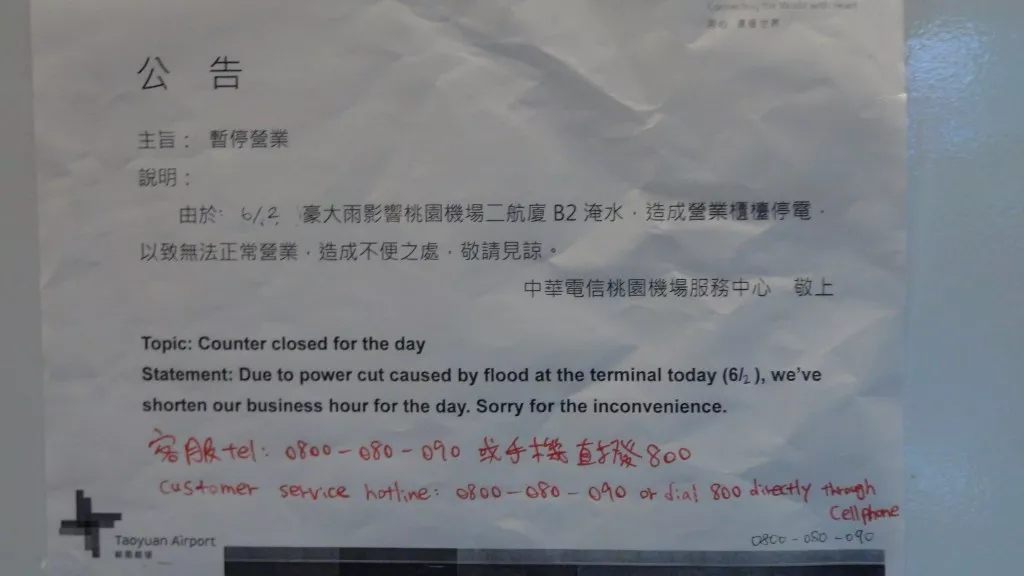 Connecting the World with Heart
用心 連接世界
公 告
主旨： 暫停營業
說明：
由於 6/2 豪大雨影響桃園機場二航廈 B2 淹水，造成營業櫃檯停電，
以致無法正常營業，造成不便之處，敬請見諒。
中華電信桃園機場服務中心 敬上
Topic: Counter closed for the day
Statement: Due to power cut caused by flood at the terminal today (6/2), we've
shorten our business hour for the day. Sorry for the inconvenience.
客服tel: 0800-080-090 或手機直撥800
customer service hotline: 0800-080-090 or dial 800 directly through
Cellphone
0800-080-090
Taoyuan Airport
桃園機場